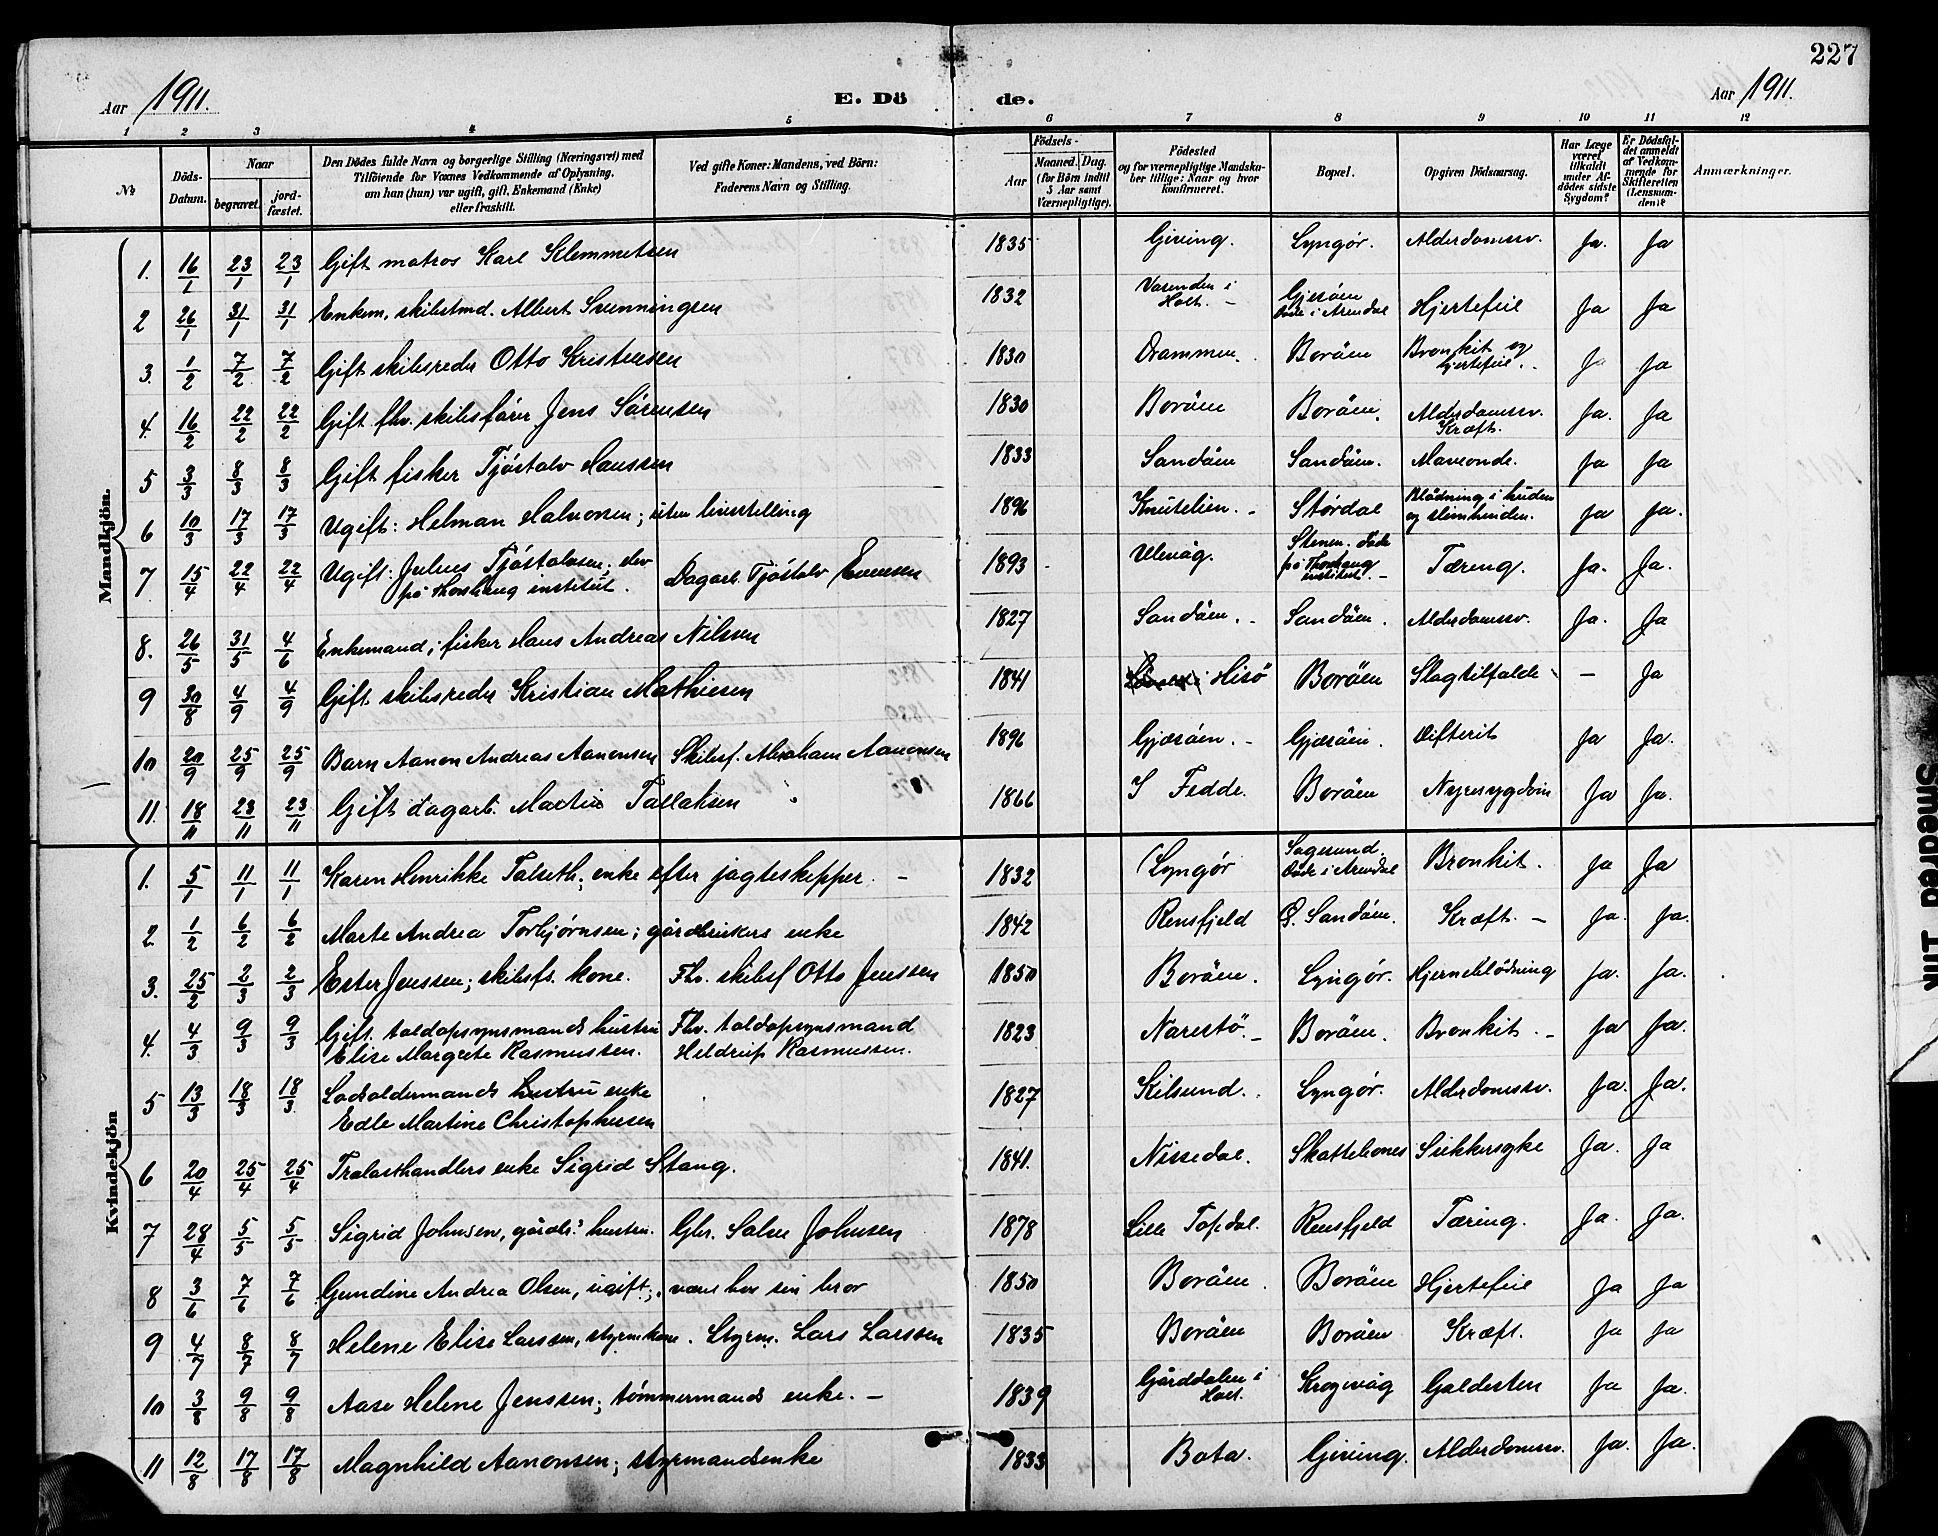 227
Aar 1911.
E. Dö de.
Aar 1911.
1 2 3 4 5 6 7 8 9 10 11 12
No
Döds-Datum.
Naar begravet. jordfæstet.
Den Dödes fulde Navn og borgerlige Stilling (Næringsvei) med Tilföiende for Voxnes Vedkommende af Oplysning, om han (hun) var ugift, gift, Enkemand (Enke) eller fraskilt.
Ved gifte Koner: Mandens, ved Börn: Faderens Navn og Stilling.
Födsels-
Aar
Maaned. Dag. (for Börn indtil 5 Aar samt Værnepligtige).
Födested og for værnepligtige Mandskaber tillige: Naar og hvor konfirmeret.
Bopæl.
Opgiven Dödsaarsag.
Har Læge været tilkaldt under Afdødes sidste Sygdom?
Er Dödsfaldet anmeldt af Vedkommende for Skifteretten (Lensmanden)?
Anmærkninger.
Mandkjön.
1. 16/1 23/1 23/1 Gift matros Karl Klemmetsen 1835 Gjeving. Lyngör. Alderdomssv. Ja. Ja
2 26/1 31/1 31/1 Enkem. skibstmd. Albert Svenningsen 1832 Vasenden i Holt. – Gjesöen Döde i Arendal Hjertefeil Ja Ja
3. 1/2 7/2 7/2 Gift skibsreder Otto Kristensen 1830 Drammen. Boröen Bronkit og hjertefeil. Ja Ja
4. 16/2 22/2 22/2 Gift fhv. skibsförer Jens Sörensen 1830 Boröen Boröen. Alderdomssv. Kræft. Ja. Ja
5 3/3 8/3 8/3 Gift fisker Tjöstolv Hanssen 1833 Sandöen Sandöen. Maveonde. Ja Ja
6 10/3 17/3 17/3 Ugift: Helman Halvorsen; uten livsstilling 1896 Knutelien. – Stördal Blödning i huden og slimhinden. Ja Ja.
7 15/4 22/4 22/4 Ugift: Julius Tjöstolvsen; elev på Thorshaug institut. Dagarb. Tjöstolv Evensen 1893 Ulevåg. Stenen. Döde på Thorshaug institut. – Tæring. Ja. Ja.
8. 26/5 31/5 4/6 Enkemand; fisker Hans Andreas Nilssen 1827 Sandöen. – Sandöen. Alderdomssv. Ja. Ja
9 30/8 4/9 4/9 Gift skibsreder Kristian Mathiesen 1841 Hisö Boröen Slagtilfælde – Ja
10 20/9 25/9 25/9 Barn Aanon Andreas Aanonsen Skibsf. Abraham Aanonsen 1896 Gjæsöen. – Gjæsöen. Difterit Ja Ja.
11. 18/11 23/11 23/11 Gift dagarb. Martin Tallaksen 1866 S Fedde. Boröen Nyresygdom Ja Ja.
Kvindekjön
1. 5/1 11/1 11/1 Karen Henrikke Talseth; enke efter jagteskipper. – 1832 Lyngör Sagesund. Döde i Arendal Bronkit. Ja Ja
2. 1/2 6/2 6/2 Marte Andrea Torbjörnsen; gårdbrukers enke 1842 Rensfjeld Ö. Sandöen. Kræft. – Ja. Ja.
3. 25/2 2/3 2/3 Ester Jenssen; skibsfs. kone. Fhv. skibsf Otto Jenssen 1850 Boröen. Lyngör. Hjerneblödning Ja. Ja.
4. 4/3 9/3 9/3 Gift. toldopsynsmands hustru Elise Margrete Rasmussen. Fhv. toldopsynsmand Heldrup Rasmussen. 1823 Narestö. – Boröen. Bronkit. – Ja Ja.
5 13/3 18/3 18/3 Lodsoldermands hustru enke Edle Martine Christophersen 1827 Kilsund. Lyngör. Alderdomssv. Ja. Ja.
6 20/4 25/4 25/4 Tralasthandlers enke Sigrid Stang. 1841. Nissedal. Skottebones Sukkersyke Ja. Ja
7 28/4 5/5 5/5 Sigrid Johnsen, gårdbs hustru. Gbr. Salve Johnsen 1878 Lille Topdal. Rensfjeld Tæring. Ja. Ja.
8 3/6 7/6 7/6 Gundine Andrea Olsen, ugift; være hos sin bror 1850 Boröen. Boröen Hjertefeil Ja Ja
9 4/7 8/7 8/7 Helene Elise Larssen, styrm kone. Styrm. Lars Larssen 1835 Boröen Boröen Kræft. Ja Ja
10 3/8 9/8 9/8 Aase Helene Jenssen; tömmermands enke. – 1839 Gårddalen i Holt. Krogevåg Galdesten Ja Ja.
11 12/8 17/8 17/8 Magnhild Aanonsen; styrmandsenke 1833 Bota. Gjeving. Alderdomssv. Ja. Ja.
Smedrød Tlik